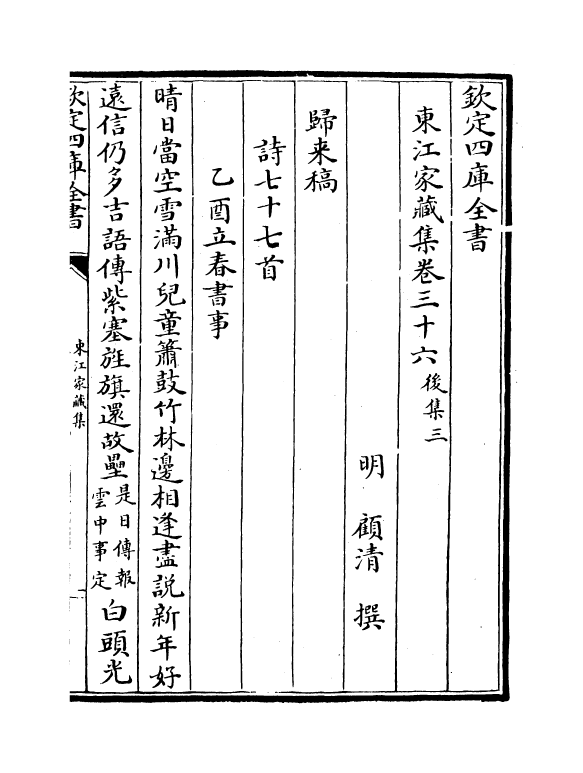 欽定四庫全書
東江家藏集卷三十六 後集三
明 顧清 撰
歸来稿
詩七十七首
乙酉立春書事
晴日當空雪滿川兒童簫鼓竹林邊相逢盡說新年好
遠信仍多吉語傳紫塞旌旗還故壘是日傳報雲中事定白頭光
欽定四庫全書
東江家藏集